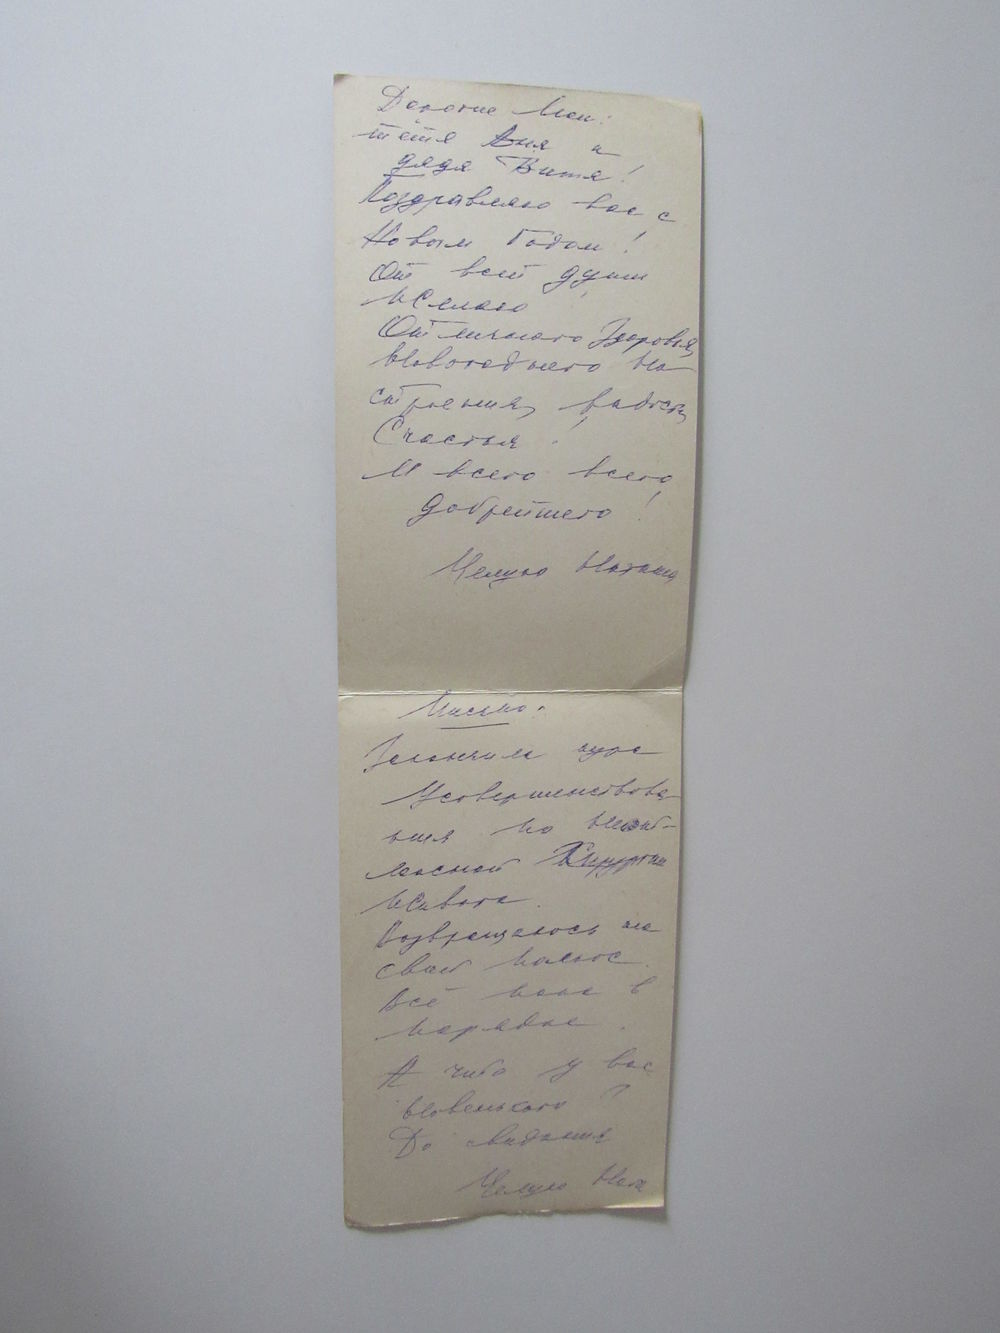 Дорогие мои:
тётя Аня и
дядя Витя!
Поздравляю вас с
Новым Годом!
От всей души
желаю
Отличного Здоровья,
Новогоднего на
строения, радости,
Счастья!
И всего всего
доброго!
Целую Наташа
Письмо.
Закончила курс
Усовершенствова
ния по
Хирургии
живота.
Возвращаюсь на
свой полюс.
Всё пока в
порядке.
А что у вас
новенького?
До свидания
Целую Ната